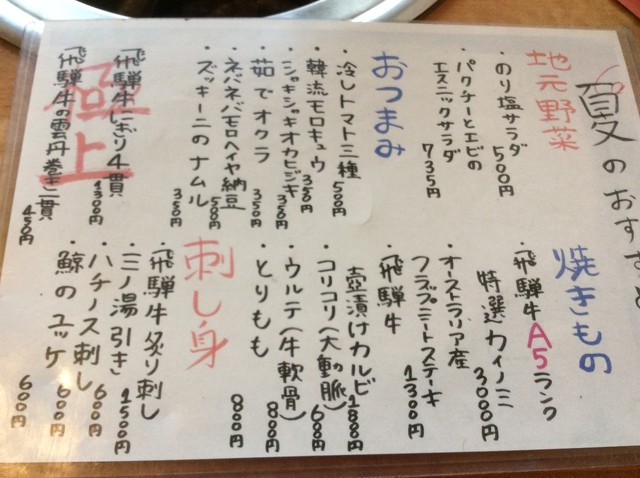 夏のおすすめ
地元野菜
・のり塩サラダ
500円
・パクチーとエビの
エスニックサラダ
735円
おつまみ
・冷しトマト三種
500円
・韓流モロキュウ
350円
・シャキシャキオカヒジキ
350円
・茹でオクラ
350円
・ネバネバモロヘイヤ納豆
500円
・ズッキーニのナムル
350円
極上
・飛騨牛にぎり4貫
1300円
・飛騨牛の雲丹巻き二貫
450円
焼きもの
・飛騨牛A5ランク
特選カイノミ
3000円
・オーストラリア産
フラップミートステーキ
1300円
・飛騨牛
壺漬けカルビ
1800円
・コリコリ(大動脈)
600円
・ウルテ(牛軟骨)
800円
・とりもも
800円
刺し身
・飛騨牛炙り刺し
1500円
・ミノ湯引き
600円
・ハチノス刺し
600円
・鯨のユッケ
600円